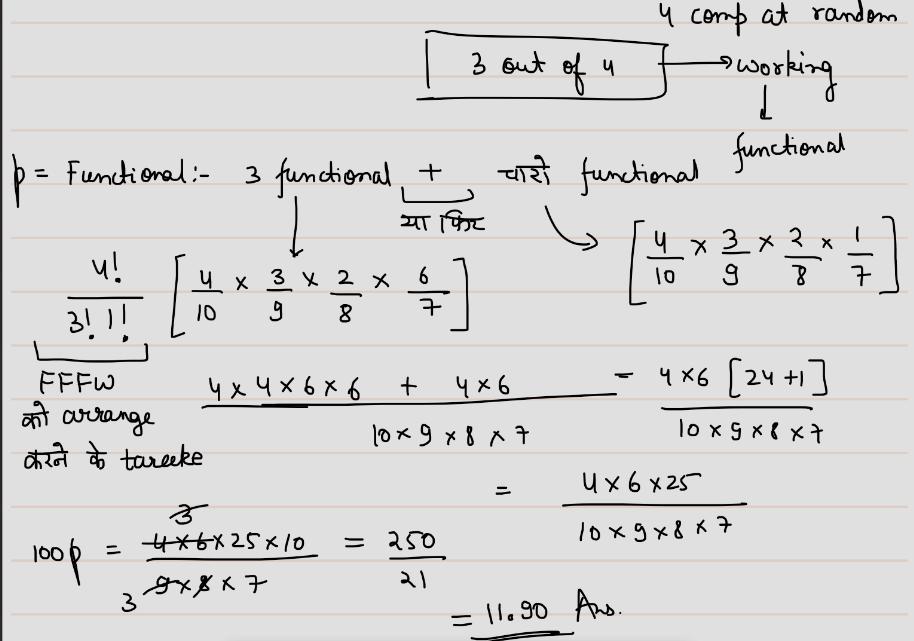 4 comp at random
3 out of 4 → working
↓
functional
p = Functional:- 3 functional + चारो functional
या फिर
4!/3! 1! [4/10 × 3/9 × 2/8 × 6/7] [4/10 × 3/9 × 2/8 × 1/7]
FFFW
को arrange
करने के tareeke
4×4×6×6 + 4×6 / 10×9×8×7 = 4×6 [24+1] / 10×9×8×7
= 4×6×25 / 10×9×8×7
100p = 4×6×25×10 / 9×8×7 = 250/21
3
3
= 11.90 Ans.